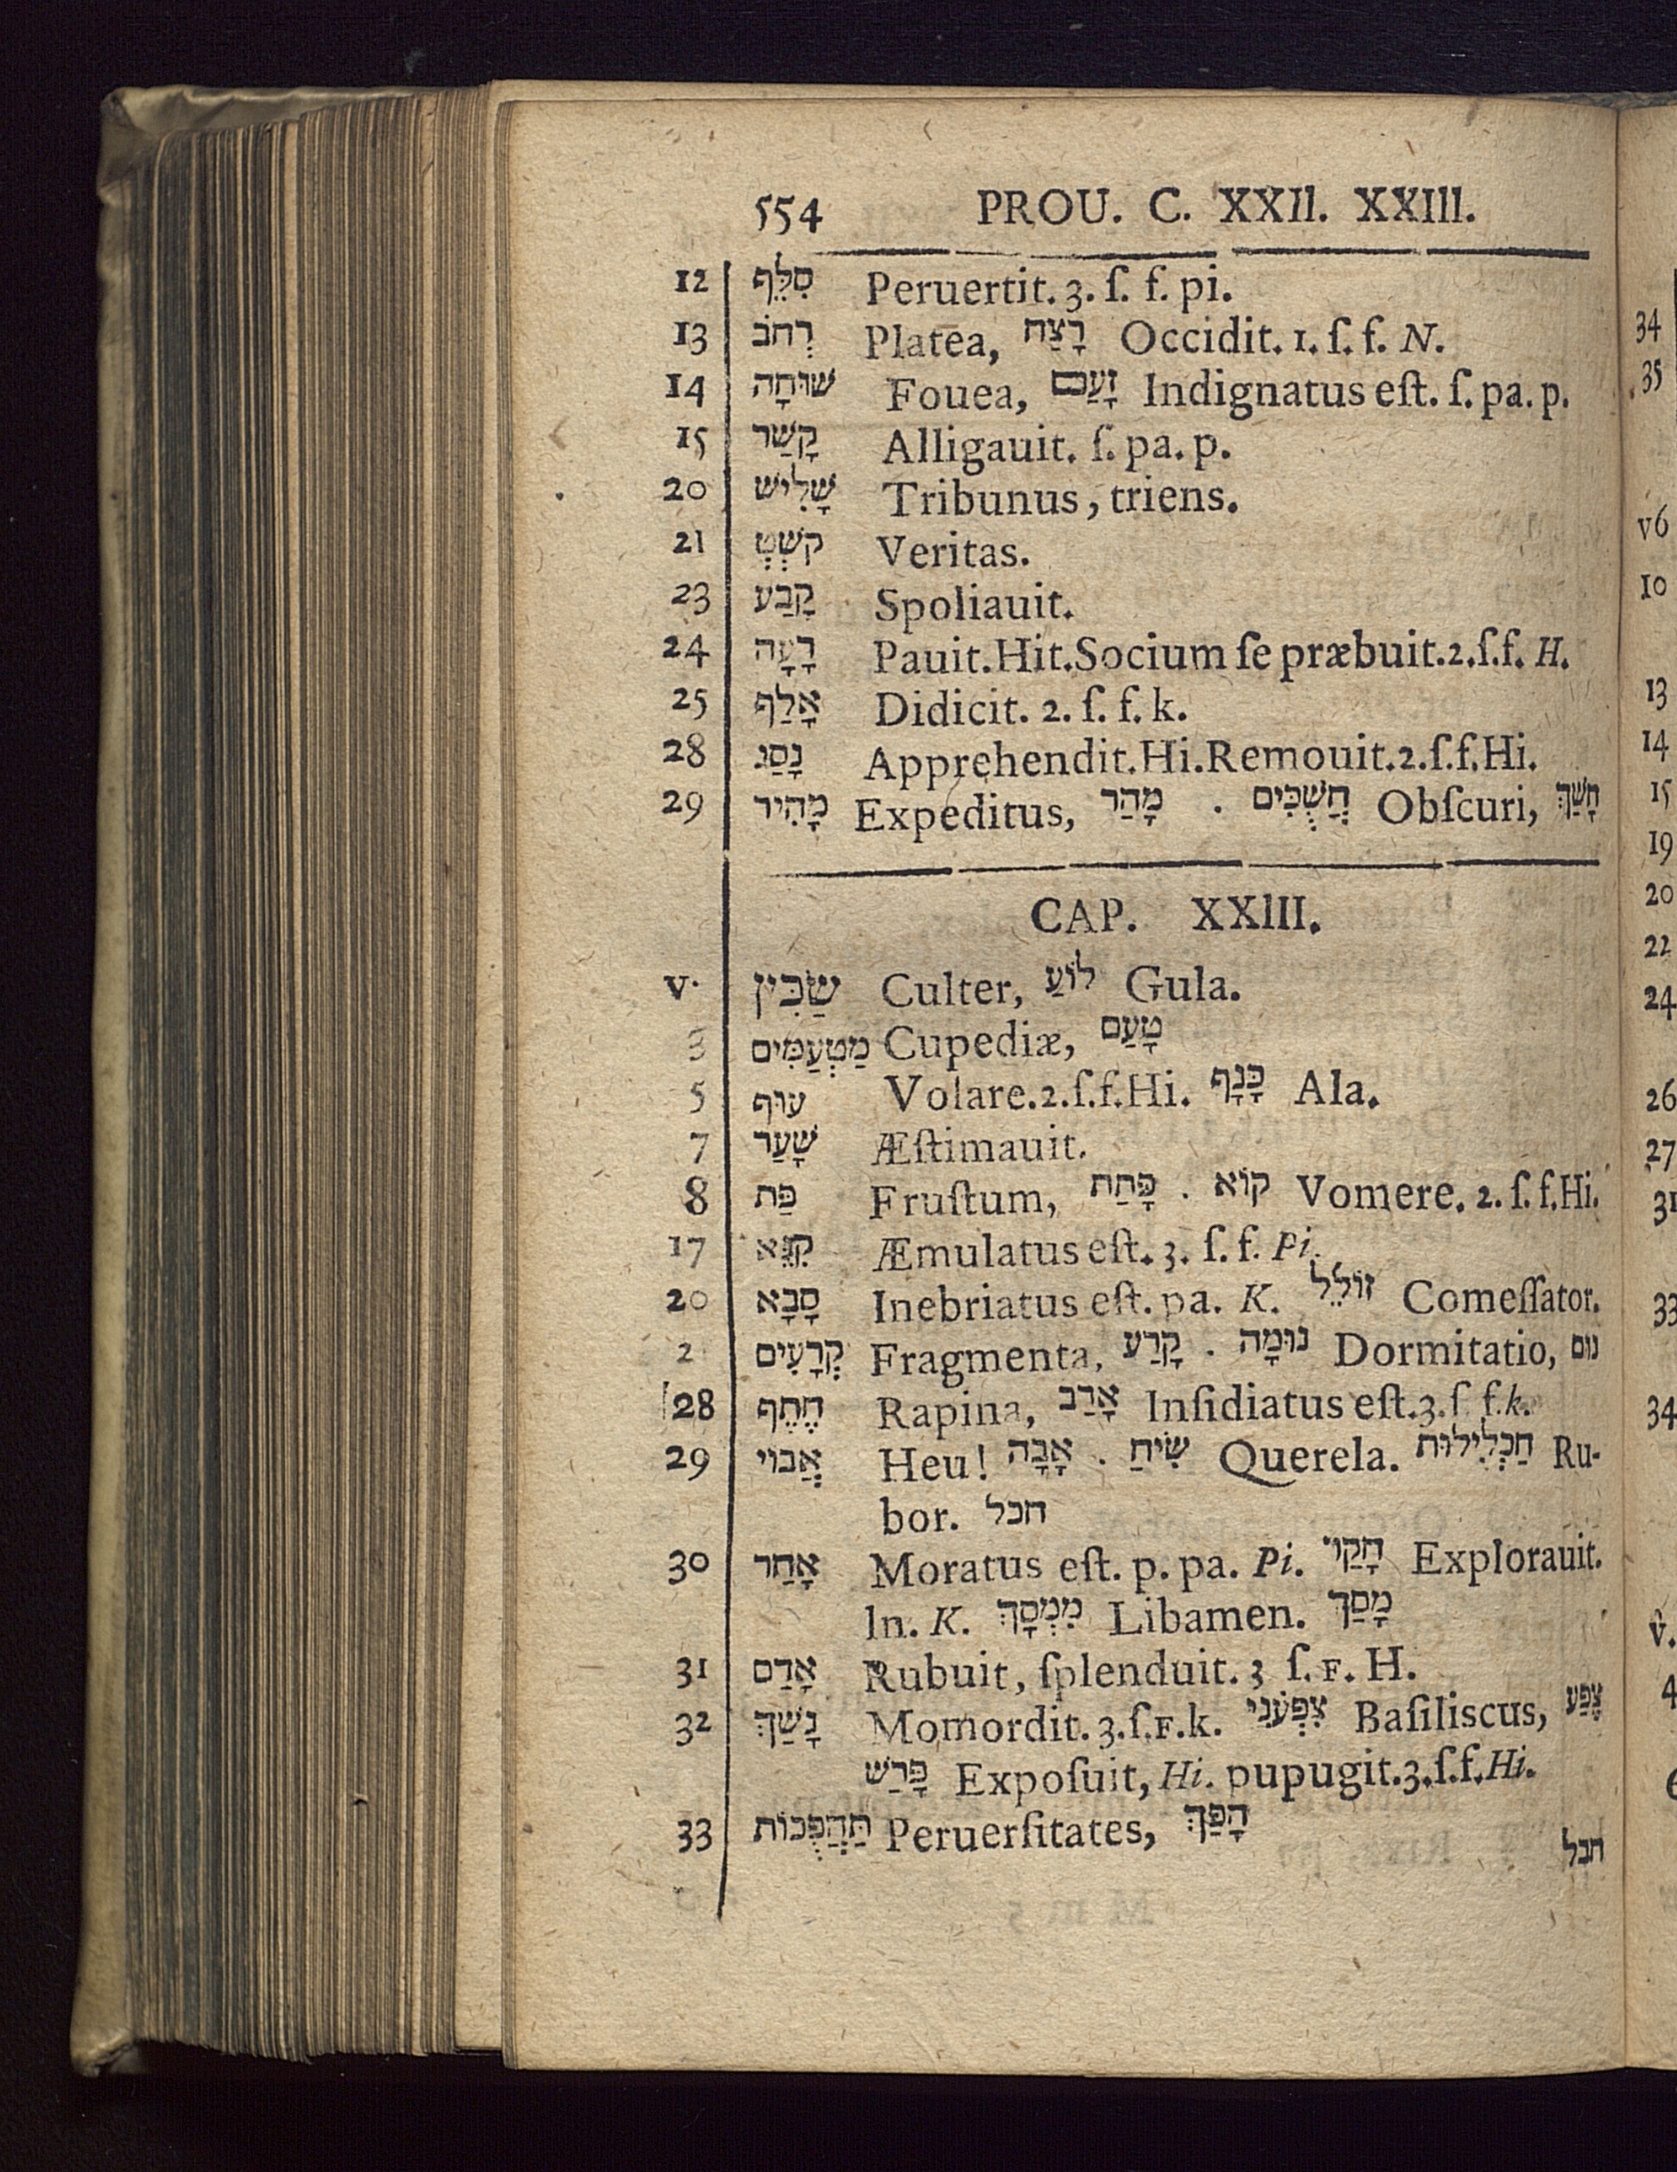 554 PROU. C. XXII. XXIII.
12 סִלֵּף Peruertit. 3. ſ. f. pi.
13 רְחֹב Platea, רָצַח Occidit. 1. ſ. f. N.
14 שׁוּחָה Fouea, זָעַם Indignatus eſt. ſ. pa. p.
15 קָשַׁר Alligauit. ſ. pa. p.
20 שָׁלִישׁ Tribunus, triens.
21 קֹשְׁטְ Veritas.
23 קָבַע Spoliauit.
24 רָעָה Pauit. Hit. Socium ſe præbuit. 2. ſ. f. H.
25 אָלַף Didicit. 2. ſ. f. k.
28 נָסַג Apprehendit. Hi. Remouit. 2. ſ. f. Hi.
29 מָהִיר Expeditus, מָהַר . חֲשֻׁכִּים Obſcuri, חָשַׁךְ
CAP. XXIII.
v. שַׂכִּין Culter, לוֹעַ Gula.
3 מַטְעַמִּים Cupediæ, טָעַם
5 עוּף Volare. 2. ſ. f. Hi. כָּנָף Ala.
7 שָׁעַר Æſtimauit.
8 פַּת Fruſtum, פָּתַת . קוֹא Vomere. 2. ſ. f. Hi.
17 קִנֵּא Æmulatus eſt. 3. ſ. f. Pi.
20 סָבָא Inebriatus eſt. pa. K. זוֹלֵל Comeſſator.
2 קְרָעִים Fragmenta, קָרַע . נוּמָה Dormitatio, נום
28 חֶתֶף Rapina, אָרַב Inſidiatus eſt. 3. ſ f. k.
29 אֲבוי Heu! אָבָה . שִׂיחַ Querela. חַכְלִילוּת Ru-
bor. חכל
30 אָחַר Moratus eſt. p. pa. Pi. חָקַר Explorauit.
In. K. מִמְסָךְ Libamen. מָסַךְ
31 אָדַם Rubuit, ſplenduit. 3 ſ. F. H.
32 נָשַׁךְ Momordit. 3. ſ. F. k. צִפְעֹנִי Baſiliscus, צֶפַע
פָּרַשׁ Expoſuit, Hi. pupugit. 3. ſ. f. Hi.
33 תַּהֲפֻּכוֹת Peruerſitates, הָפַּךְ
חבל
34
35
v6
10
13
14
15
19
20
22
24
26
27
31
33
34
v.
4